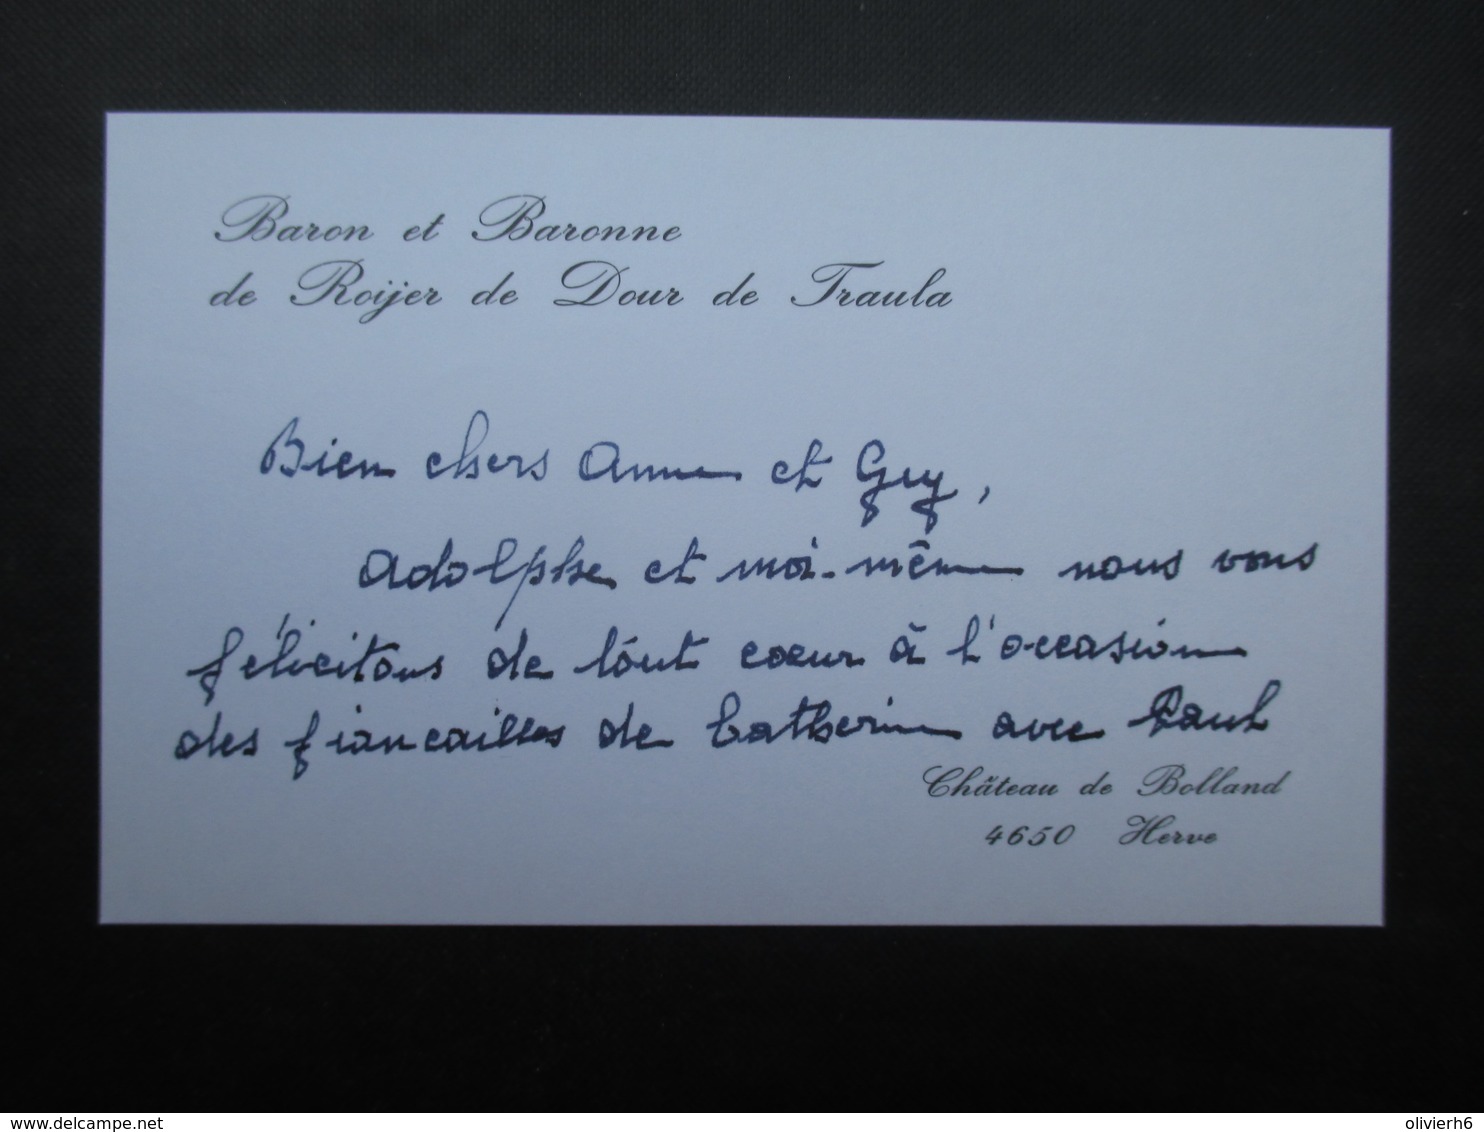 Baron et Baronne
de Roijer de Dour de Traula
Bien chers Anne et Guy,
Adolphe et moi-même nous vous
félicitons de tout coeur à l'occasion
des fiancailles de Catherine avec Paul
Château de Bolland
4650 Herve
delcampe.net
olivierh6